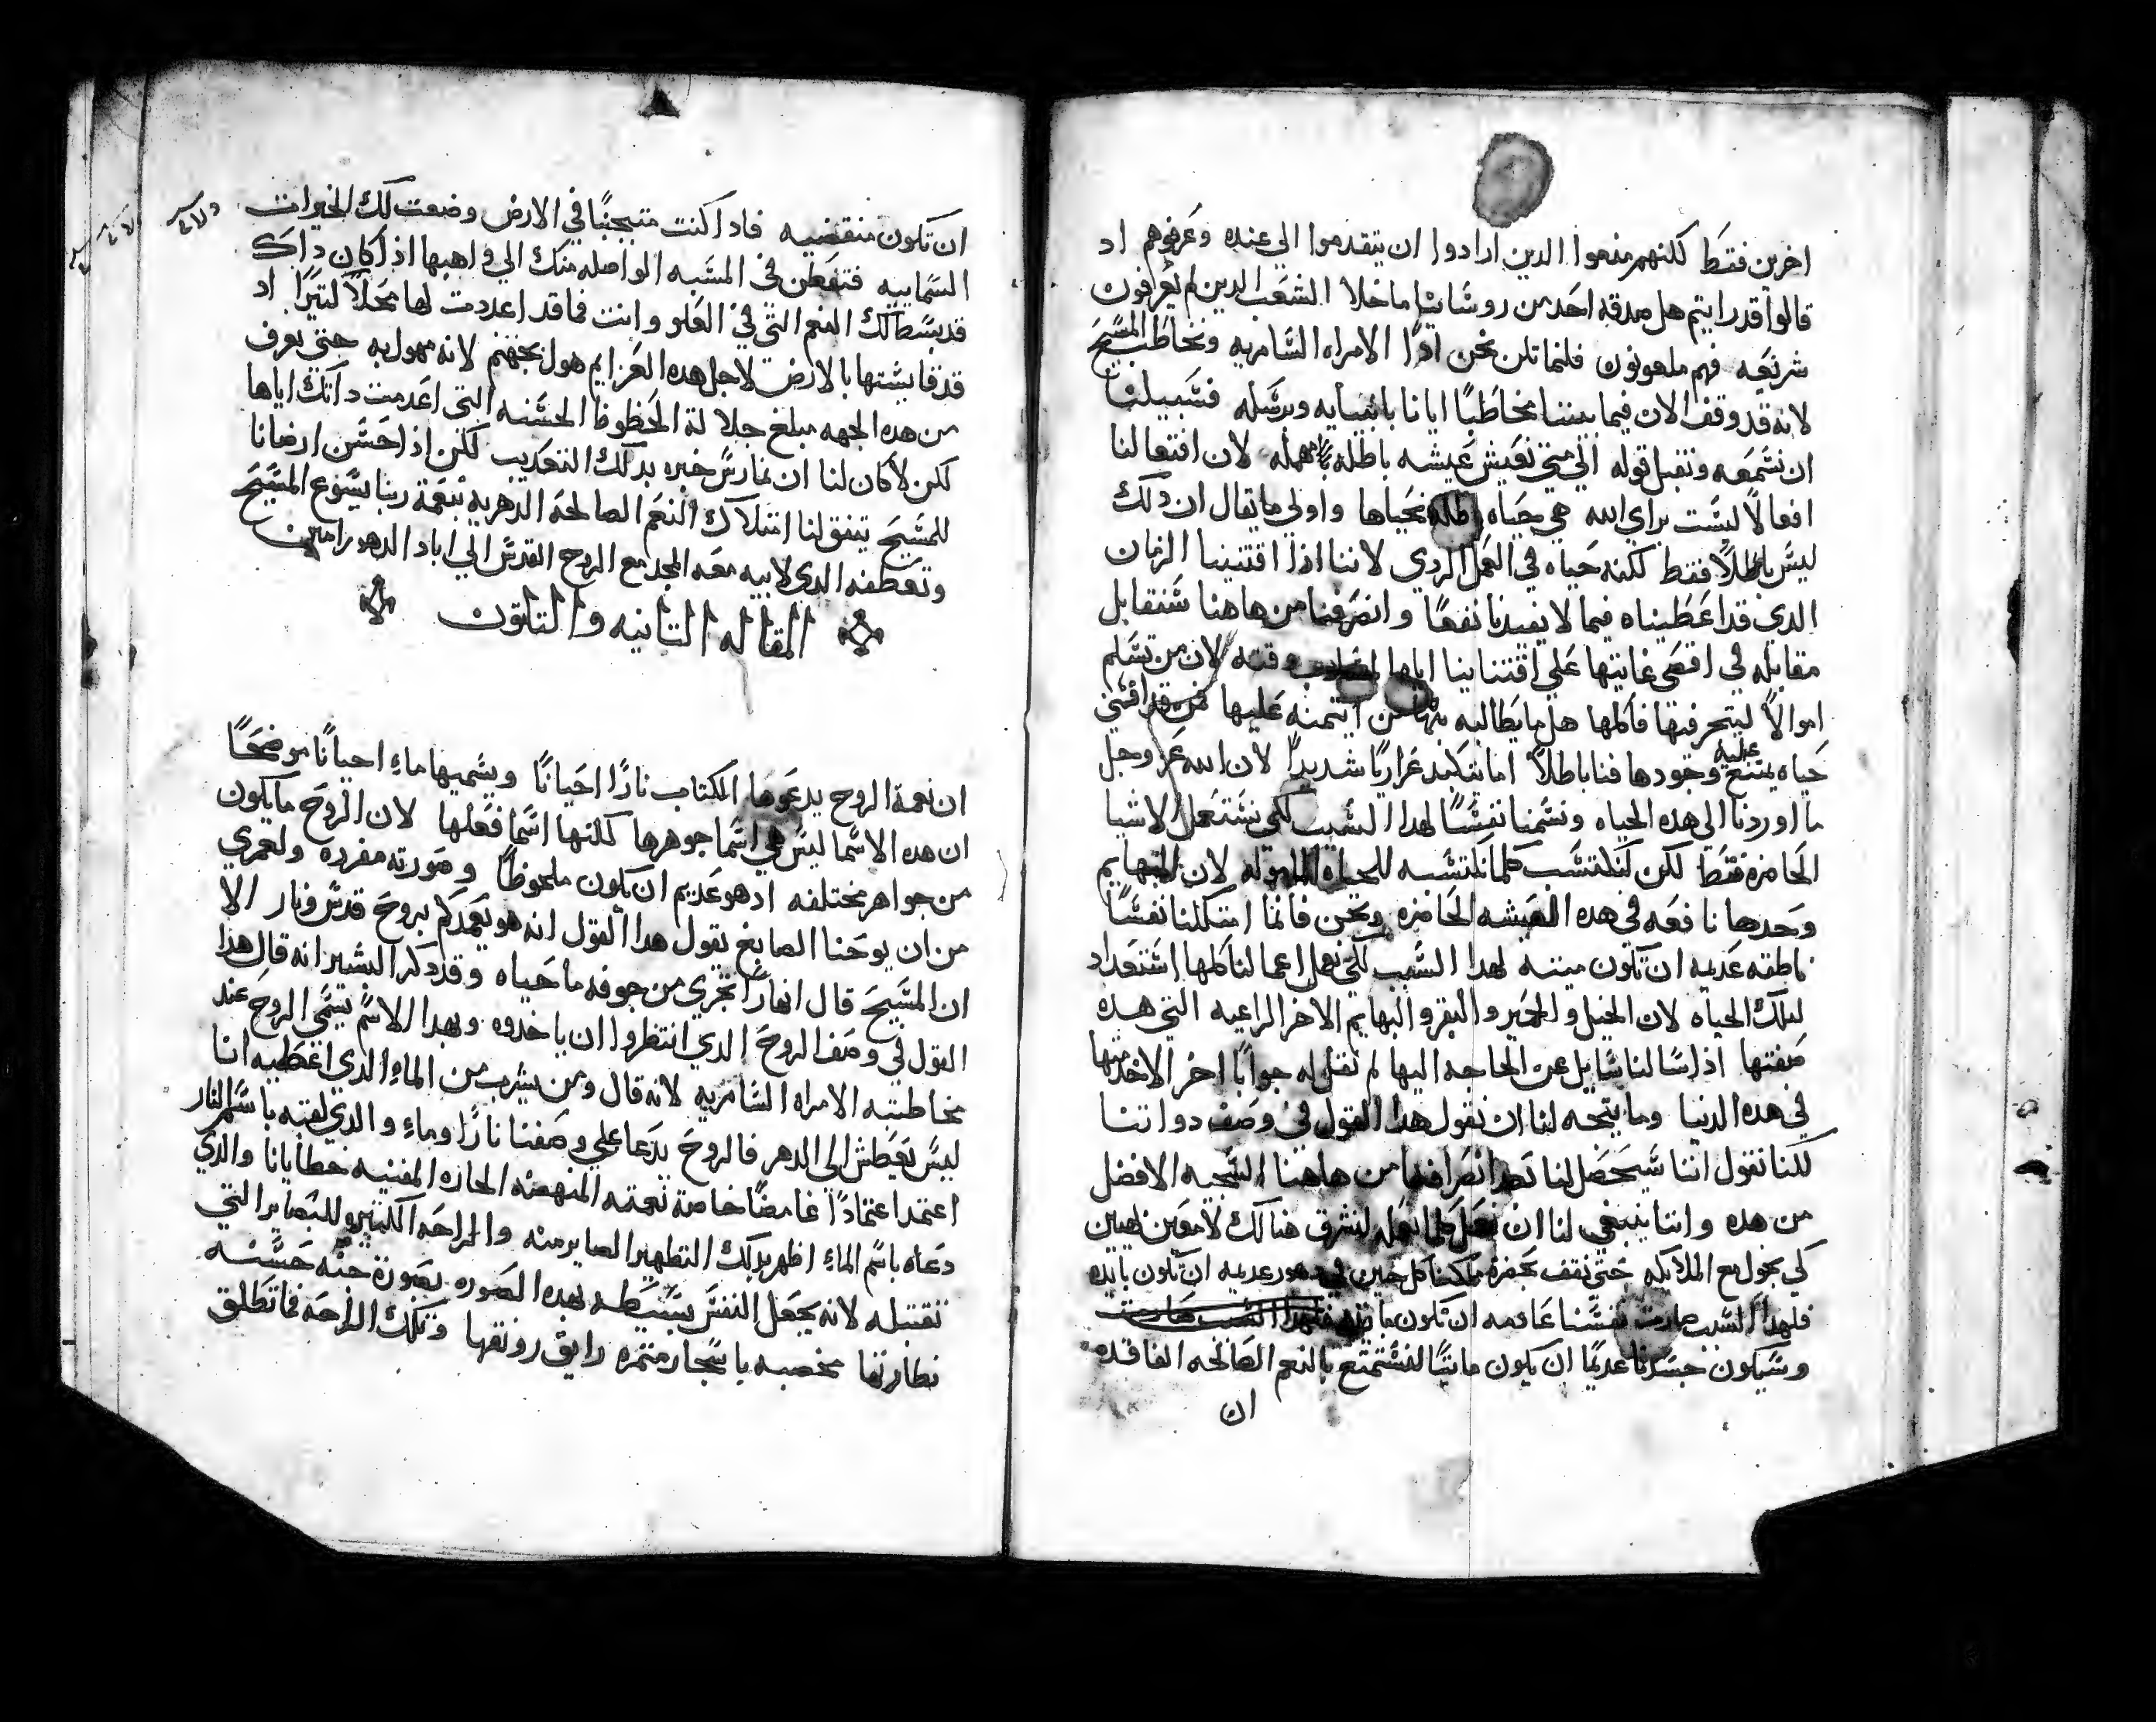 اخرين فقط لكنهم منعوا الدين ارادوا ان يتقدموا الي عنده وعرفوهم اد
قالوا قد رايتم هل صدقه احد من روشاينا ما خلا الشعب الدين لم يعرفون
شريعه فهم ملعونون فلنماتلن نحن ادا الامراه السامريه ونخاطب المسيح
لانه قد وقف الان فيما بيننا مخاطبا ايانا بانبيايه وبرسله فسبيلنا
ان نسمعه ونقبل قوله الي متي نعيش عيشه باطله مهمله لان افتعالنا
افعالا ليست براي الله هي حياه باطله نحياها واولي ما يقال ان دلك
ليس باطلا فقط لكنه حياه في العمل الردي لاننا ادا اقتنينا الزمان
الدي قد اعطيناه فيما لا يفيدنا نفعا وانصرفنا من هاهنا سنقابل
مقابله في اقصي غايتها علي اقتناينا اياها وقته لان من تسلم
اموالا ليتجر فيها فاكلها هل ما يطالبه بها من ايتمنه عليها فمن قد افني
حياه يمتنع عليه وجودها فنا باطلا اما يتكبد غزاريا شديدا لان الله عز وجل
ما اوردنا الي هده الحياه ونسمنا نفسا لهدا السبب لكي نستعمل الاشيا
الحاضره فقط لكن لنكتسب كلما نكتسبه للحياه الماموله لان البهايم
وحدها نافعه في هده العيشه الحاضره ونحن فانما امتلكنا نفسا
ناطقه عديمه ان تكون ميته لهدا السبب لكي نعمل اعمالنا كلها استعداد
لتلك الحياه لان الخيل والحمير والبقر والبهايم الاخر الراعيه التي هده
صفتها ادا سالنا سايل عن الحاجه اليها لم نقل له جوابا اخر الا خدمتها
في هده الدنيا وما يتجه لنا ان نقول هدا القول في وصف دواتنا
لكنا نقول اننا سيحصل لنا بعد انصرافنا من هاهنا السجيه الافضل
من هده واننا ينبغي لنا ان نعمل كلما نعمل لنشرق هنالك لامعين نهيين
كي نجول مع الملايكه حتي نقف بحضرة ملكنا كل حين في دهور عديمه ان تكون بايده
فلهدا السبب صارت نفسنا عادمه ان تكون مايته فلهدا السبب صارت
وسيكون جسدنا عديما ان يكون مايتا لنستمتع بالنعم الصالحه الفاقده
ان
ان تكون منقضيه فادا كنت متبجحا في الارض وضعت لك الخيرات
السماييه فتفطن في المسبه الواصله منك الي واهبها اد كان داك
قد بسط لك النعم التي في العلو وانت فما قد اعددت لها محلا لتيرا اد
قد قايستها بالارض لاجل هده العزايم هول بجهنم لانه مهول به حتي يعرف
من هده الجهه مبلغ جلالة الحظوظ الحسنه التي اعدمت داتك اياها
لكن لا كان لنا ان نمارس خبره بدلك التعديب لكن اد احسن ارضانا
للمسيح يتفق لنا امتلاك النعم الصالحه الدهريه بنعمة ربنا يسوع المسيح
وتعطفه الدي لابيه معه المجد مع الروح القدس الي اباد الدهور امين
المقاله التانيه والتلتون
ان نعمة الروح يدعوها الكتاب نارا احيانا ويسميها ماء احيانا موضحا
ان هده الاسما ليس هي اسما جوهرها لكنها اسما فعلها لان الروح ما يكون
من جواهر مختلفه اد هو عديم ان يكون ملحوظا وصورته مفرده ولعمري
من ان يوحنا الصابغ يقول هدا القول انه هو يعمدكم بروح قدس ونار الا
ان المسيح قال انهارا تجري من جوفه ما حياه وقد دكر البشير انه قال هدا
القول في وصف الروح الدي انتظروا ان ياخدوه وبهدا الاسم يتسمي الروح عند
مخاطبته الامراه السامريه لانه قال ومن يشرب من الماء الدي اعطيه انا
ليس يعطش الي الدهر فالروح يدعا علي وصفنا نارا وماء والدي لقبه باسم النار
اعتمد اعتمادا غامضا خاصة نعمته المنهضه الحاره المفنيه خطايانا والدي
دعاه باسم الماء اظهر بدلك التطهير الصاير منه والراحه الكتيره للبصاير التي
تقتبله لانه يجعل النفس بسيطه بهده الصوره بصورة جنه حسنه
نظارتها مخصبه باشجار متمره رايق رونقها وتملك الراحه فما تطلق